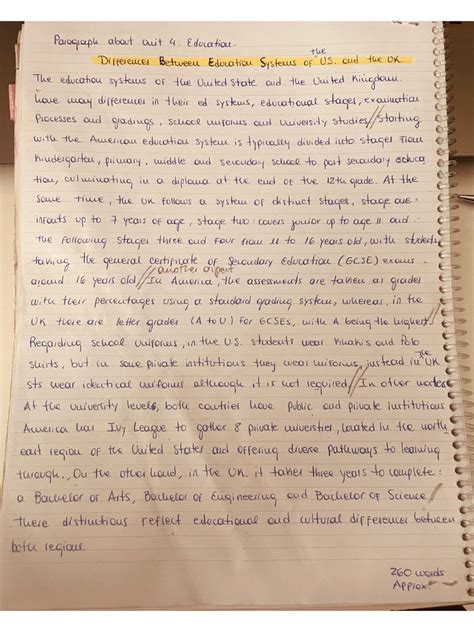 Paragraph about Unit 4: Education.
the
Differences Between Education Systems of U.S. and the UK.
The education systems of the United State and the United Kingdom
have many differences in their ed. systems, educational stages, examination
Processes and gradings, school uniforms and University studies// Starting
with the American education system is typically divided into stages from
Kindergarten, primary, middle and secundary school to post secondary educa
tion, culminating in a diploma at the end of the 12th grade. At the
same time, the UK follows a system of distinct stages, stage one:
infants up to 7 years of age, stage two: covers junior up to age 11 and
the following stages three and four from 11 to 16 years old, with students
taking the general certificate of Secundary Education (GCSE) exams
another aspect
around 16 years old// In America, the assessments are taken as grades
with their percentages using a standard grading system, whereas, in the
UK there are letter grades (A to U) for GCSEs, with A being the highest//
Regarding school uniforms, in the U.S. students wear Khakis and Polo
the
shirts, but in some private institutions they wear uniforms, instead in UK
sts wear identical uniforms although it is not required// In other
At the university levels, both countries have Public and private institutions
America has Ivy League to gather 8 private universities, located in the north
east region of the United States and offering diverse pathways to learning
through. On the other hand, in the UK. it takes three years to complete:
a Bachelor of Arts, Bachelor of Engineering and Bachelor of Science/
these distinctions reflect educational and cultural differences between
both regions.
260 words
Approx.